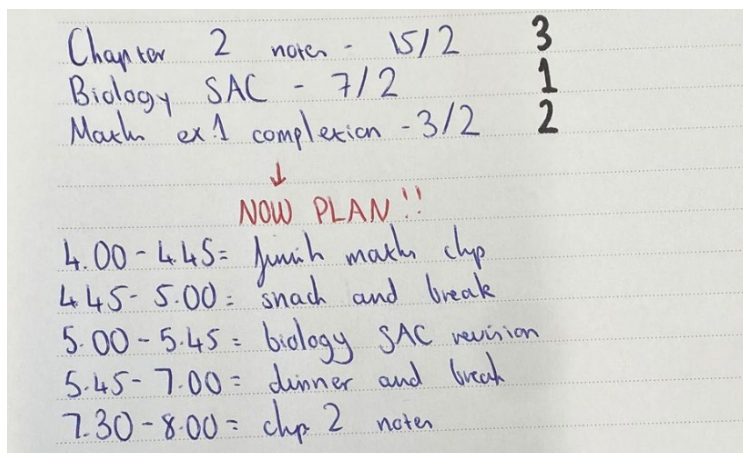 Chapter 2 notes - 15/2 3
Biology SAC - 7/2 1
Maths ex 1 completion - 3/2 2
↓
NOW PLAN!!
4.00-4.45= finish maths chp
4.45-5.00= snack and break
5.00-5.45= biology SAC revision
5.45-7.00= dinner and break
7.30-8.00= chp 2 notes